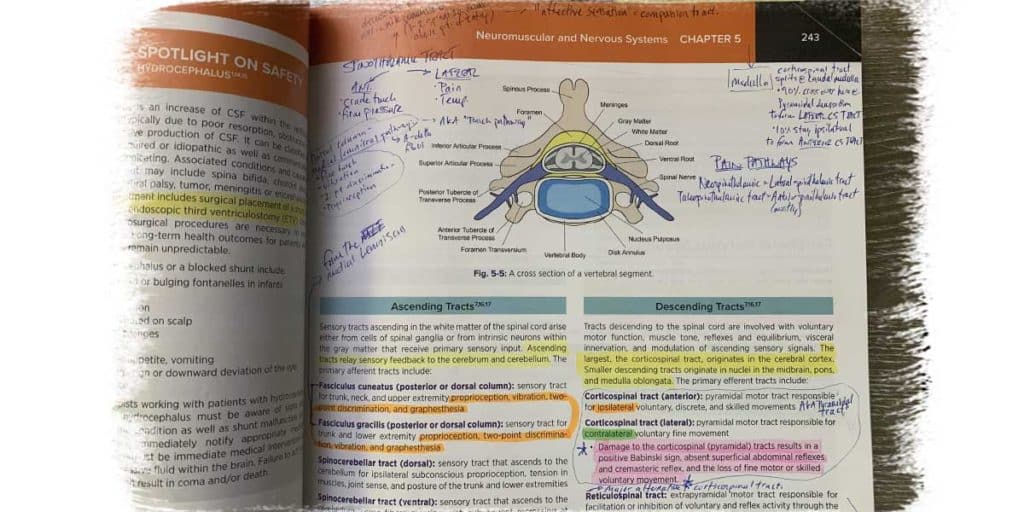 SPOTLIGHT ON SAFETY
HYDROCEPHALUS
is an increase of CSF within the
typically due to poor resorption,
production of CSF. It can be
or idiopathic as well as
Associated conditions and
may include spina bifida,
palsy, tumor, meningitis or
includes surgical placement of a
endoscopic third ventriculostomy (ETV)
surgical procedures are necessary
long-term health outcomes for
remain unpredictable.
or a blocked shunt include
or bulging fontanelles in infants
on scalp
vomiting
or downward deviation of the eye
working with patients with
must be aware of
as well as shunt
immediately notify appropriate
be immediate medical
fluid within the brain.
result in coma and/or death.
"affective sensation" companion tract.
Neuromuscular and Nervous Systems CHAPTER 5 243
SPINOTHALAMIC TRACT
ANT.
Crude touch
Firm pressure
LATERAL
Pain
Temp
AKA "Touch pathway"
A-delta
vibration
2 pt discrimination
Proprioception
form the
medial lemniscus
Medulla
corticospinal tract
splits @ caudal medulla
90% cross over here
Pyramidal decussation
to form LATERAL CS TRACT
10% stay ipsilateral
to form ANTERIOR CS TRACT
PAIN PATHWAYS
Neospinothalamic = Lateral spinothalamic tract
Paleospinothalamic tract = Anterior spinothalamic tract
(mostly)
Spinous Process
Foramen
Inferior Articular Process
Superior Articular Process
Posterior Tubercle of
Transverse Process
Anterior Tubercle of
Transverse Process
Foramen Transversium
Vertebral Body
Meninges
Gray Matter
White Matter
Dorsal Root
Ventral Root
Spinal Nerve
Nucleus Pulposus
Disk Annulus
Fig. 5-5: A cross section of a vertebral segment.
Ascending Tracts
Sensory tracts ascending in the white matter of the spinal cord arise
either from cells of spinal ganglia or from intrinsic neurons within
the gray matter that receive primary sensory input. Ascending
tracts relay sensory feedback to the cerebrum and cerebellum. The
primary afferent tracts include:
Fasciculus cuneatus (posterior or dorsal column): sensory tract
for trunk, neck, and upper extremity proprioception, vibration, two-
point discrimination, and graphesthesia
Fasciculus gracilis (posterior or dorsal column): sensory tract for
trunk and lower extremity proprioception, two-point discrimina-
tion, vibration, and graphesthesia
Spinocerebellar tract (dorsal): sensory tract that ascends to the
cerebellum for ipsilateral subconscious proprioception, tension in
muscles, joint sense, and posture of the trunk and lower extremities
Spinocerebellar tract (ventral): sensory tract that ascends to the
Descending Tracts
Tracts descending to the spinal cord are involved with voluntary
motor function, muscle tone, reflexes and equilibrium, visceral
innervation, and modulation of ascending sensory signals. The
largest, the corticospinal tract, originates in the cerebral cortex.
Smaller descending tracts originate in nuclei in the midbrain, pons,
and medulla oblongata. The primary efferent tracts include:
Corticospinal tract (anterior): pyramidal motor tract responsible
for ipsilateral voluntary, discrete, and skilled movements AKA Pyramidal
tracts
Corticospinal tract (lateral): pyramidal motor tract responsible for
contralateral voluntary fine movement
• Damage to the corticospinal (pyramidal) tracts results in a
positive Babinski sign, absent superficial abdominal reflexes
and cremasteric reflex, and the loss of fine motor or skilled
voluntary movement.
corticospinal tract.
Reticulospinal tract: extrapyramidal motor tract responsible for
facilitation or inhibition of voluntary and reflex activity through the